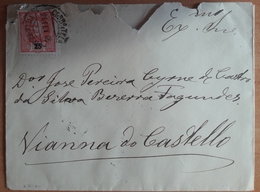 E. mo
Ex. mo
Dor José Pereira Cyrne de Castro
da Silva Bezerra Fagundes
Vianna do Castello